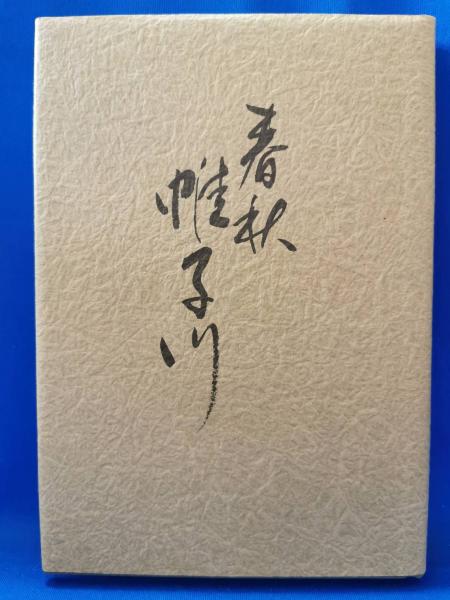 春秋
帷子川